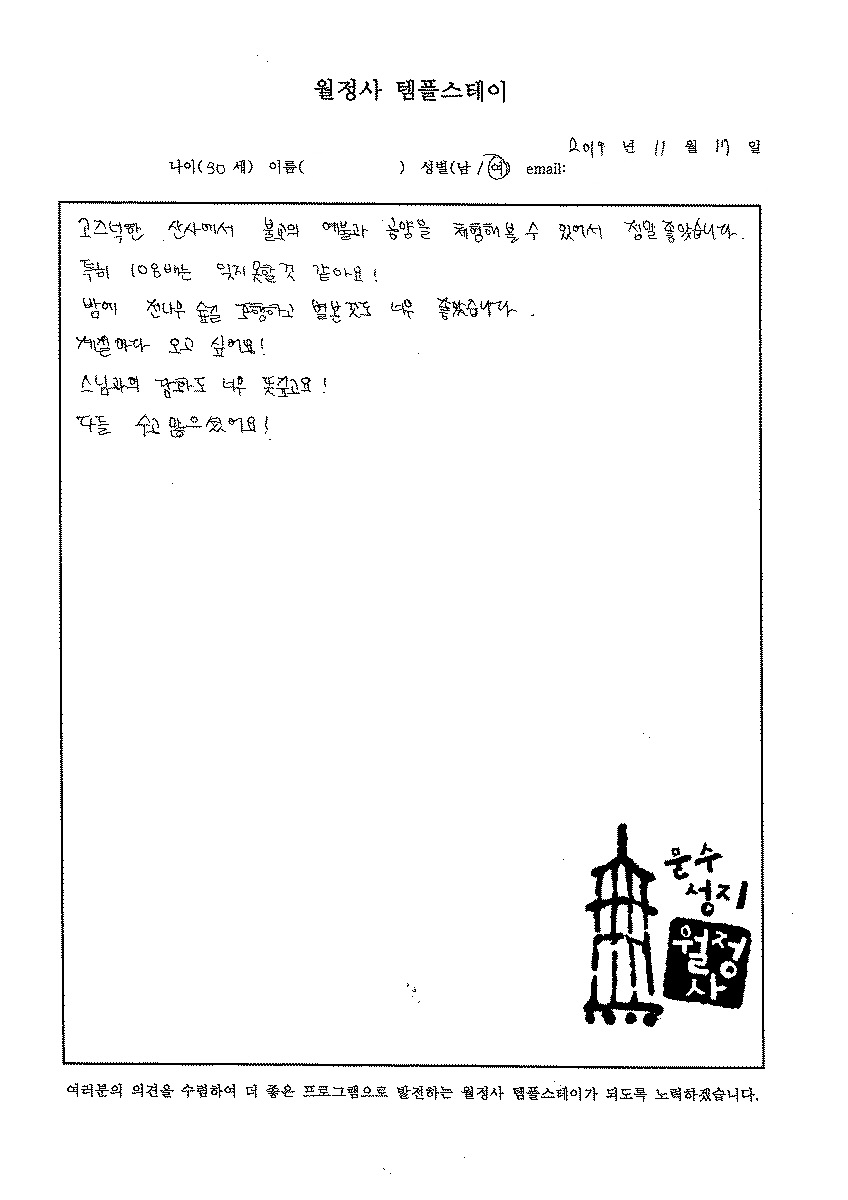 월정사 템플스테이
2019 년 11 월 17 일
나이(30 세) 이름( ) 성별(남 / 여) email:
고즈넉한 산사에서 불교의 예불과 공양을 체험해 볼 수 있어서 정말 좋았습니다.
특히 108배는 잊지 못할 것 같아요!
밤에 전나무 숲길 포행하고 별 본 것도 너무 좋았습니다.
계절마다 오고 싶어요!
스님과의 담화도 너무 뜻깊고요!
다들 수고 많으셨어요!
문수
성지
월정
사
여러분의 의견을 수렴하여 더 좋은 프로그램으로 발전하는 월정사 템플스테이가 되도록 노력하겠습니다.